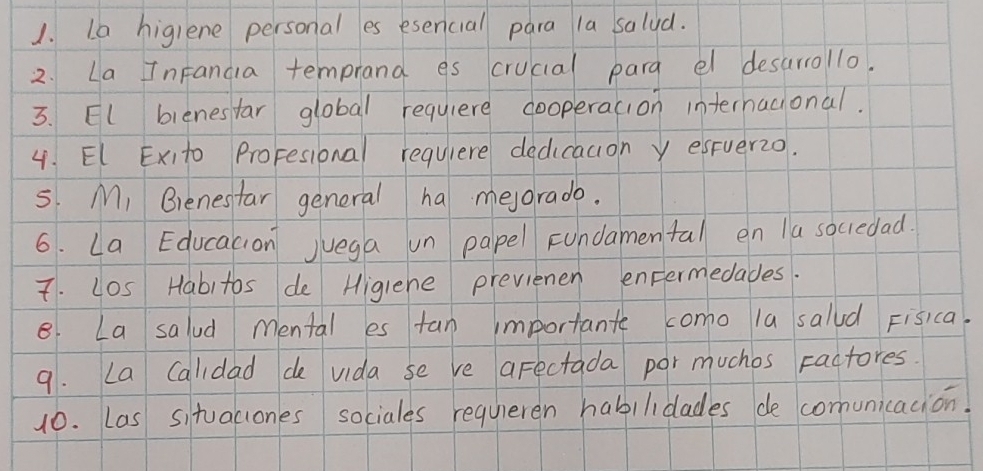 1. La higiene personal es esencial para la salud.
2. La Infancia temprana es crucial para el desarrollo.
3. El bienestar global requiere cooperación internacional.
4. El Exito Profesional requiere dedicacion y esfuerzo.
5. Mi Bienestar general ha mejorado.
6. La Educación juega un papel fundamental en la sociedad.
7. Los Habitos de Higiene previenen enfermedades.
8. La salud mental es tan importante como la salud Física.
9. La Calidad de vida se ve afectada por muchos factores.
10. Las situaciones sociales requieren habilidades de comunicación.